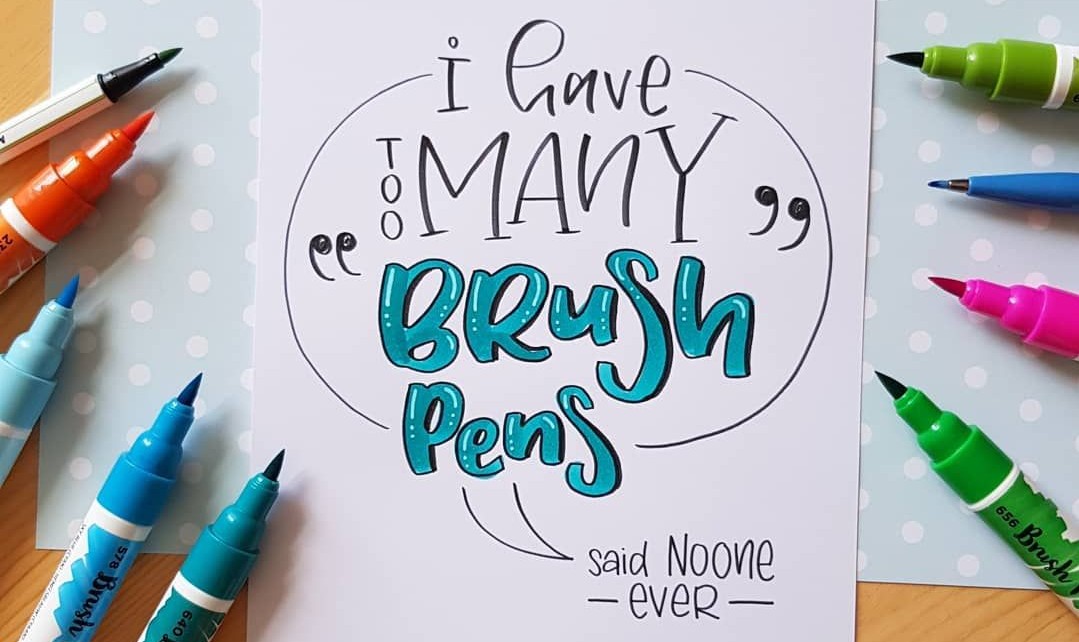 i have
TOO MANY
“ BRush ”
Pens
said NOONE
— EVER —
23
578 Brush
640
656 Brush